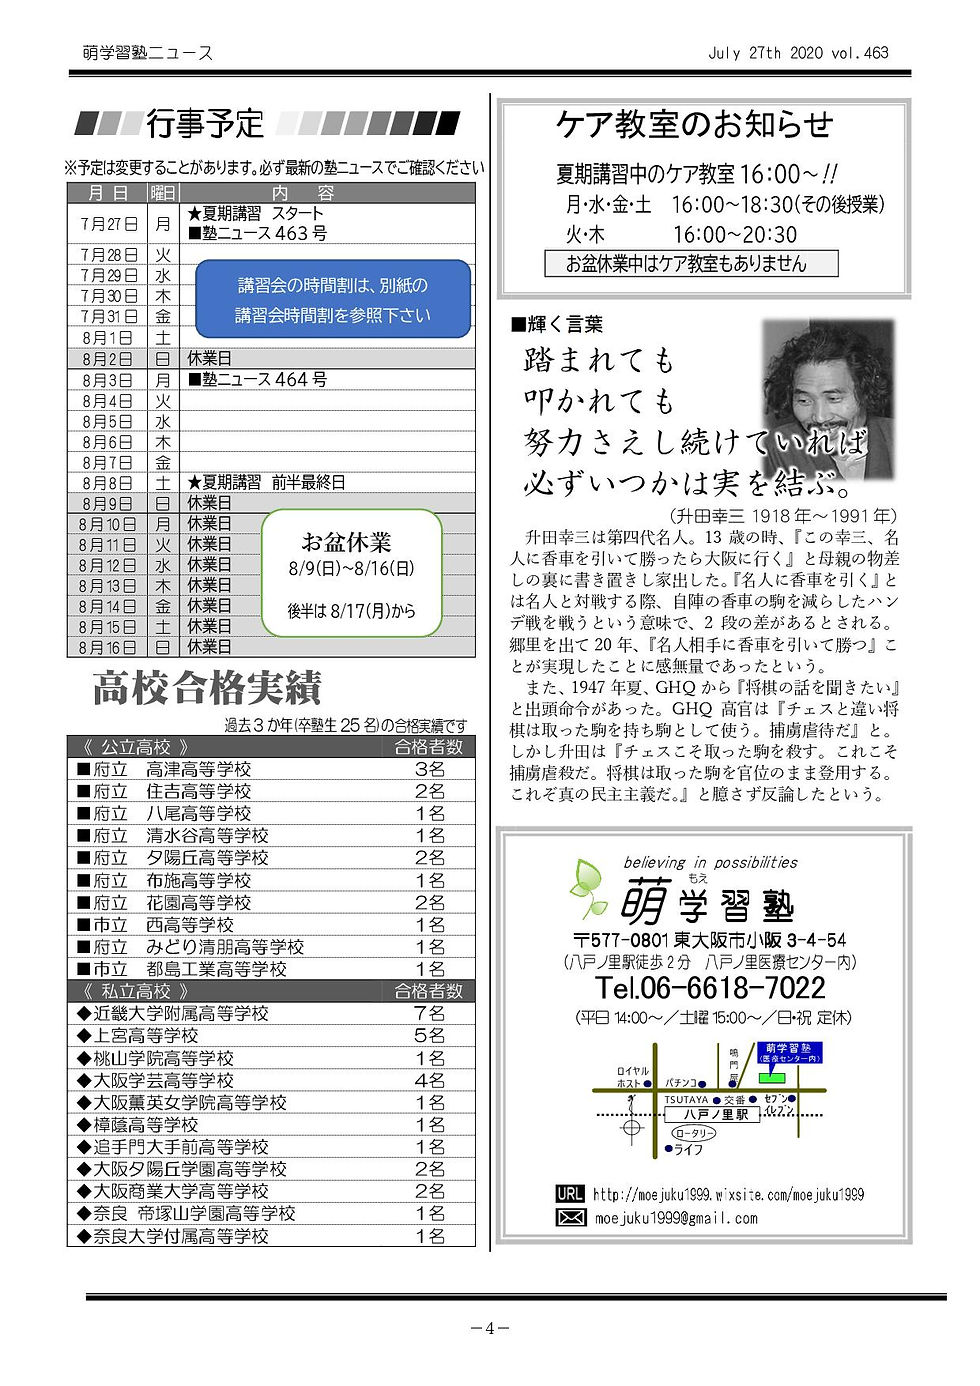 萌学習塾ニュース
July 27th 2020 vol.463
行事予定
※予定は変更することがあります。必ず最新の塾ニュースでご確認ください
月 日 曜日 内 容
7月27日 月 ★夏期講習 スタート
■塾ニュース 463 号
7月28日 火
7月29日 水
7月30日 木
7月31日 金
8月1日 土
講習会の時間割は、別紙の
講習会時間割を参照下さい
8月2日 日 休業日
8月3日 月 ■塾ニュース 464 号
8月4日 火
8月5日 水
8月6日 木
8月7日 金
8月8日 土 ★夏期講習 前半最終日
8月9日 日 休業日
8月10日 月 休業日
8月11日 火 休業日
8月12日 水 休業日
8月13日 木 休業日
8月14日 金 休業日
8月15日 土 休業日
8月16日 日 休業日
お盆休業
8/9(日)~8/16(日)
後半は 8/17(月)から
高校合格実績
過去3か年(卒塾生25名)の合格実績です
《 公立高校 》 合格者数
■府立 高津高等学校 3名
■府立 住吉高等学校 2名
■府立 八尾高等学校 1名
■府立 清水谷高等学校 1名
■府立 夕陽丘高等学校 2名
■府立 布施高等学校 1名
■府立 花園高等学校 2名
■市立 西高等学校 1名
■府立 みどり清朋高等学校 1名
■市立 都島工業高等学校 1名
《 私立高校 》 合格者数
◆近畿大学附属高等学校 7名
◆上宮高等学校 5名
◆桃山学院高等学校 1名
◆大阪学芸高等学校 4名
◆大阪薫英女学院高等学校 1名
◆樟蔭高等学校 1名
◆追手門大手前高等学校 1名
◆大阪夕陽丘学園高等学校 2名
◆大阪商業大学高等学校 2名
◆奈良 帝塚山学園高等学校 1名
◆奈良大学付属高等学校 1名
ケア教室のお知らせ
夏期講習中のケア教室 16:00~!!
月・水・金・土 16:00~18:30(その後授業)
火・木 16:00~20:30
お盆休業中はケア教室もありません
■輝く言葉
踏まれても
叩かれても
努力さえし続けていれば
必ずいつかは実を結ぶ。
(升田幸三 1918 年~1991 年)
升田幸三は第四代名人。13 歳の時、『この幸三、名
人に香車を引いて勝ったら大阪に行く』と母親の物差
しの裏に書き置きし家出した。『名人に香車を引く』と
は名人と対戦する際、自陣の香車の駒を減らしたハン
デ戦を戦うという意味で、2 段の差があるとされる。
郷里を出て 20 年、『名人相手に香車を引いて勝つ』こ
とが実現したことに感無量であったという。
また、1947 年夏、GHQ から『将棋の話を聞きたい』
と出頭命令があった。GHQ 高官は『チェスと違い将
棋は取った駒を持ち駒として使う。捕虜虐待だ』と。
しかし升田は『チェスこそ取った駒を殺す。これこそ
捕虜虐殺だ。将棋は取った駒を官位のまま登用する。
これぞ真の民主主義だ。』と臆さず反論したという。
believing in possibilities
もえ
萌学習塾
〒577-0801 東大阪市小阪 3-4-54
(八戸ノ里駅徒歩2分 八戸ノ里医療センター内)
Tel.06-6618-7022
(平日 14:00~/土曜 15:00~/日・祝 定休)
萌学習塾
(医療センター内)
鳴門屋
ロイヤル
ホスト
パチンコ
TSUTAYA
交番
セブン
イレブン
八戸ノ里駅
ロータリー
ライフ
URL http://moejuku1999.wixsite.com/moejuku1999
moejuku1999@gmail.com
-4-